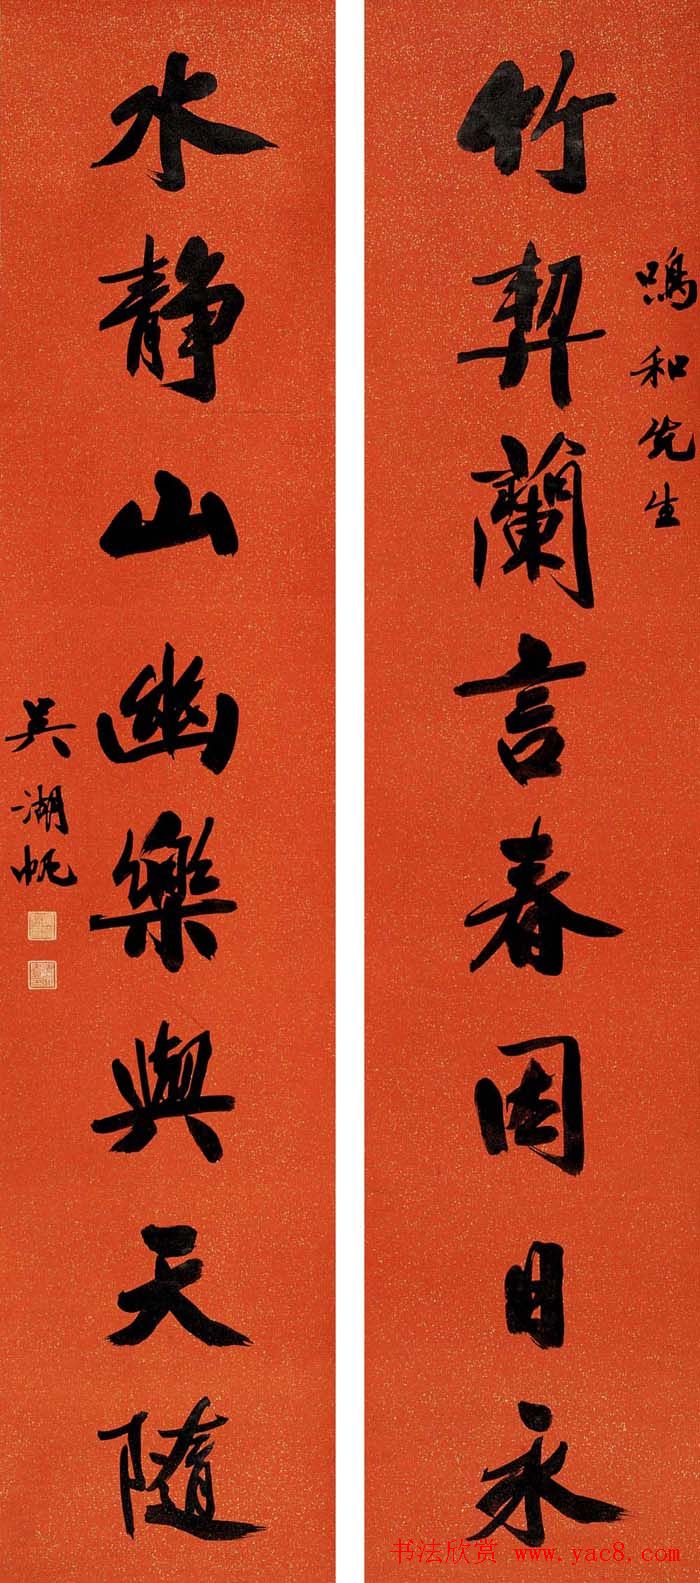 鳴和先生
竹契蘭言春因日永
水静山幽樂與天隨
吴湖帆
书法欣赏 www.yac8.com